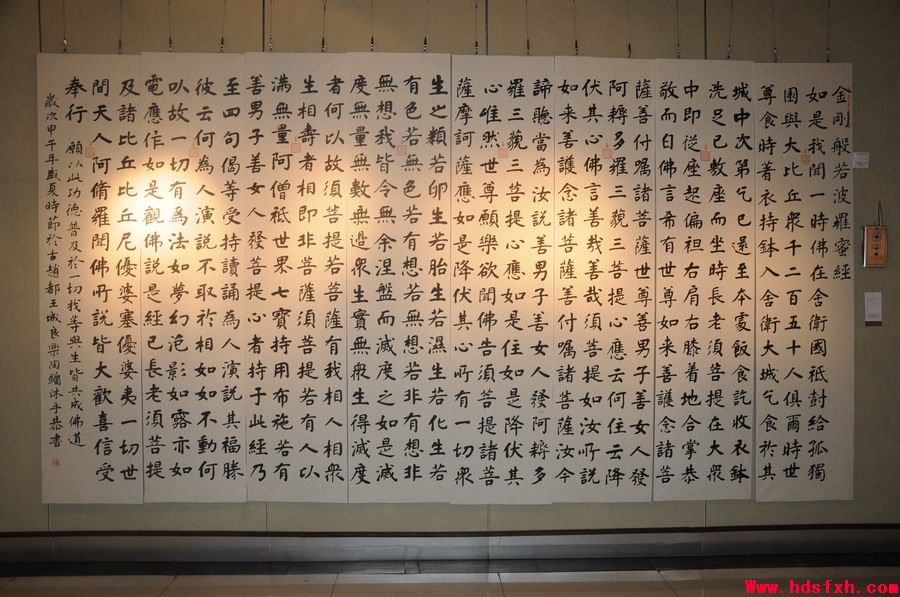 金剛般若波羅蜜經
如是我聞一時佛在舍衛國祇尌給孤獨
園與大比丘眾千二百五十人俱爾時世
尊食時著衣持鉢入舍衛大城乞食於其
城中次第乞已還至本處飯食訖收衣鉢
洗足已敷座而坐時長老須菩提在大眾
中即從座起偏袒右肩右膝着地合掌恭
敬而白佛言希有世尊如来善護念諸菩
薩善付囑諸菩薩世尊善男子善女人發
阿耨多羅三藐三菩提心應云何住云何降
伏其心佛言善哉善哉須菩提如汝所說
如来善護念諸菩薩善付囑諸菩薩汝今
諦聽當為汝說善男子善女人發阿耨多
羅三藐三菩提心應如是住如是降伏其
心唯然世尊願樂欲聞佛告須菩提諸菩
薩摩訶薩應如是降伏其心所有一切眾
生之類若卵生若胎生若濕生若化生若
有色若無色若有想若無想若非有想若非
無想我皆令入無余涅盤而滅度之如是滅
度無量無數無邊眾生實無眾生得滅度
者何以故須菩提若菩薩有我相人相眾
生相壽者相即非菩薩須菩提若有人以
滿無量阿僧祇世界七寶持用布施若有
善男子善女人發菩提心者持于此經乃
至四句偈等受持讀誦為人演說其福勝
彼云何為人演說不取於相如如不動何
以故一切有為法如夢幻泡影如露亦如
電應作如是觀佛說是經已長老須菩提
及諸比丘比丘尼優婆塞優婆夷一切世
間天人阿脩羅聞佛所說皆大歡喜信受
奉行 願以此功德普及於一切我等與生皆共成佛道
歲次甲午年盛夏時節於古趙都王城良樂陶沐手恭書
Www.hdsfxh.com